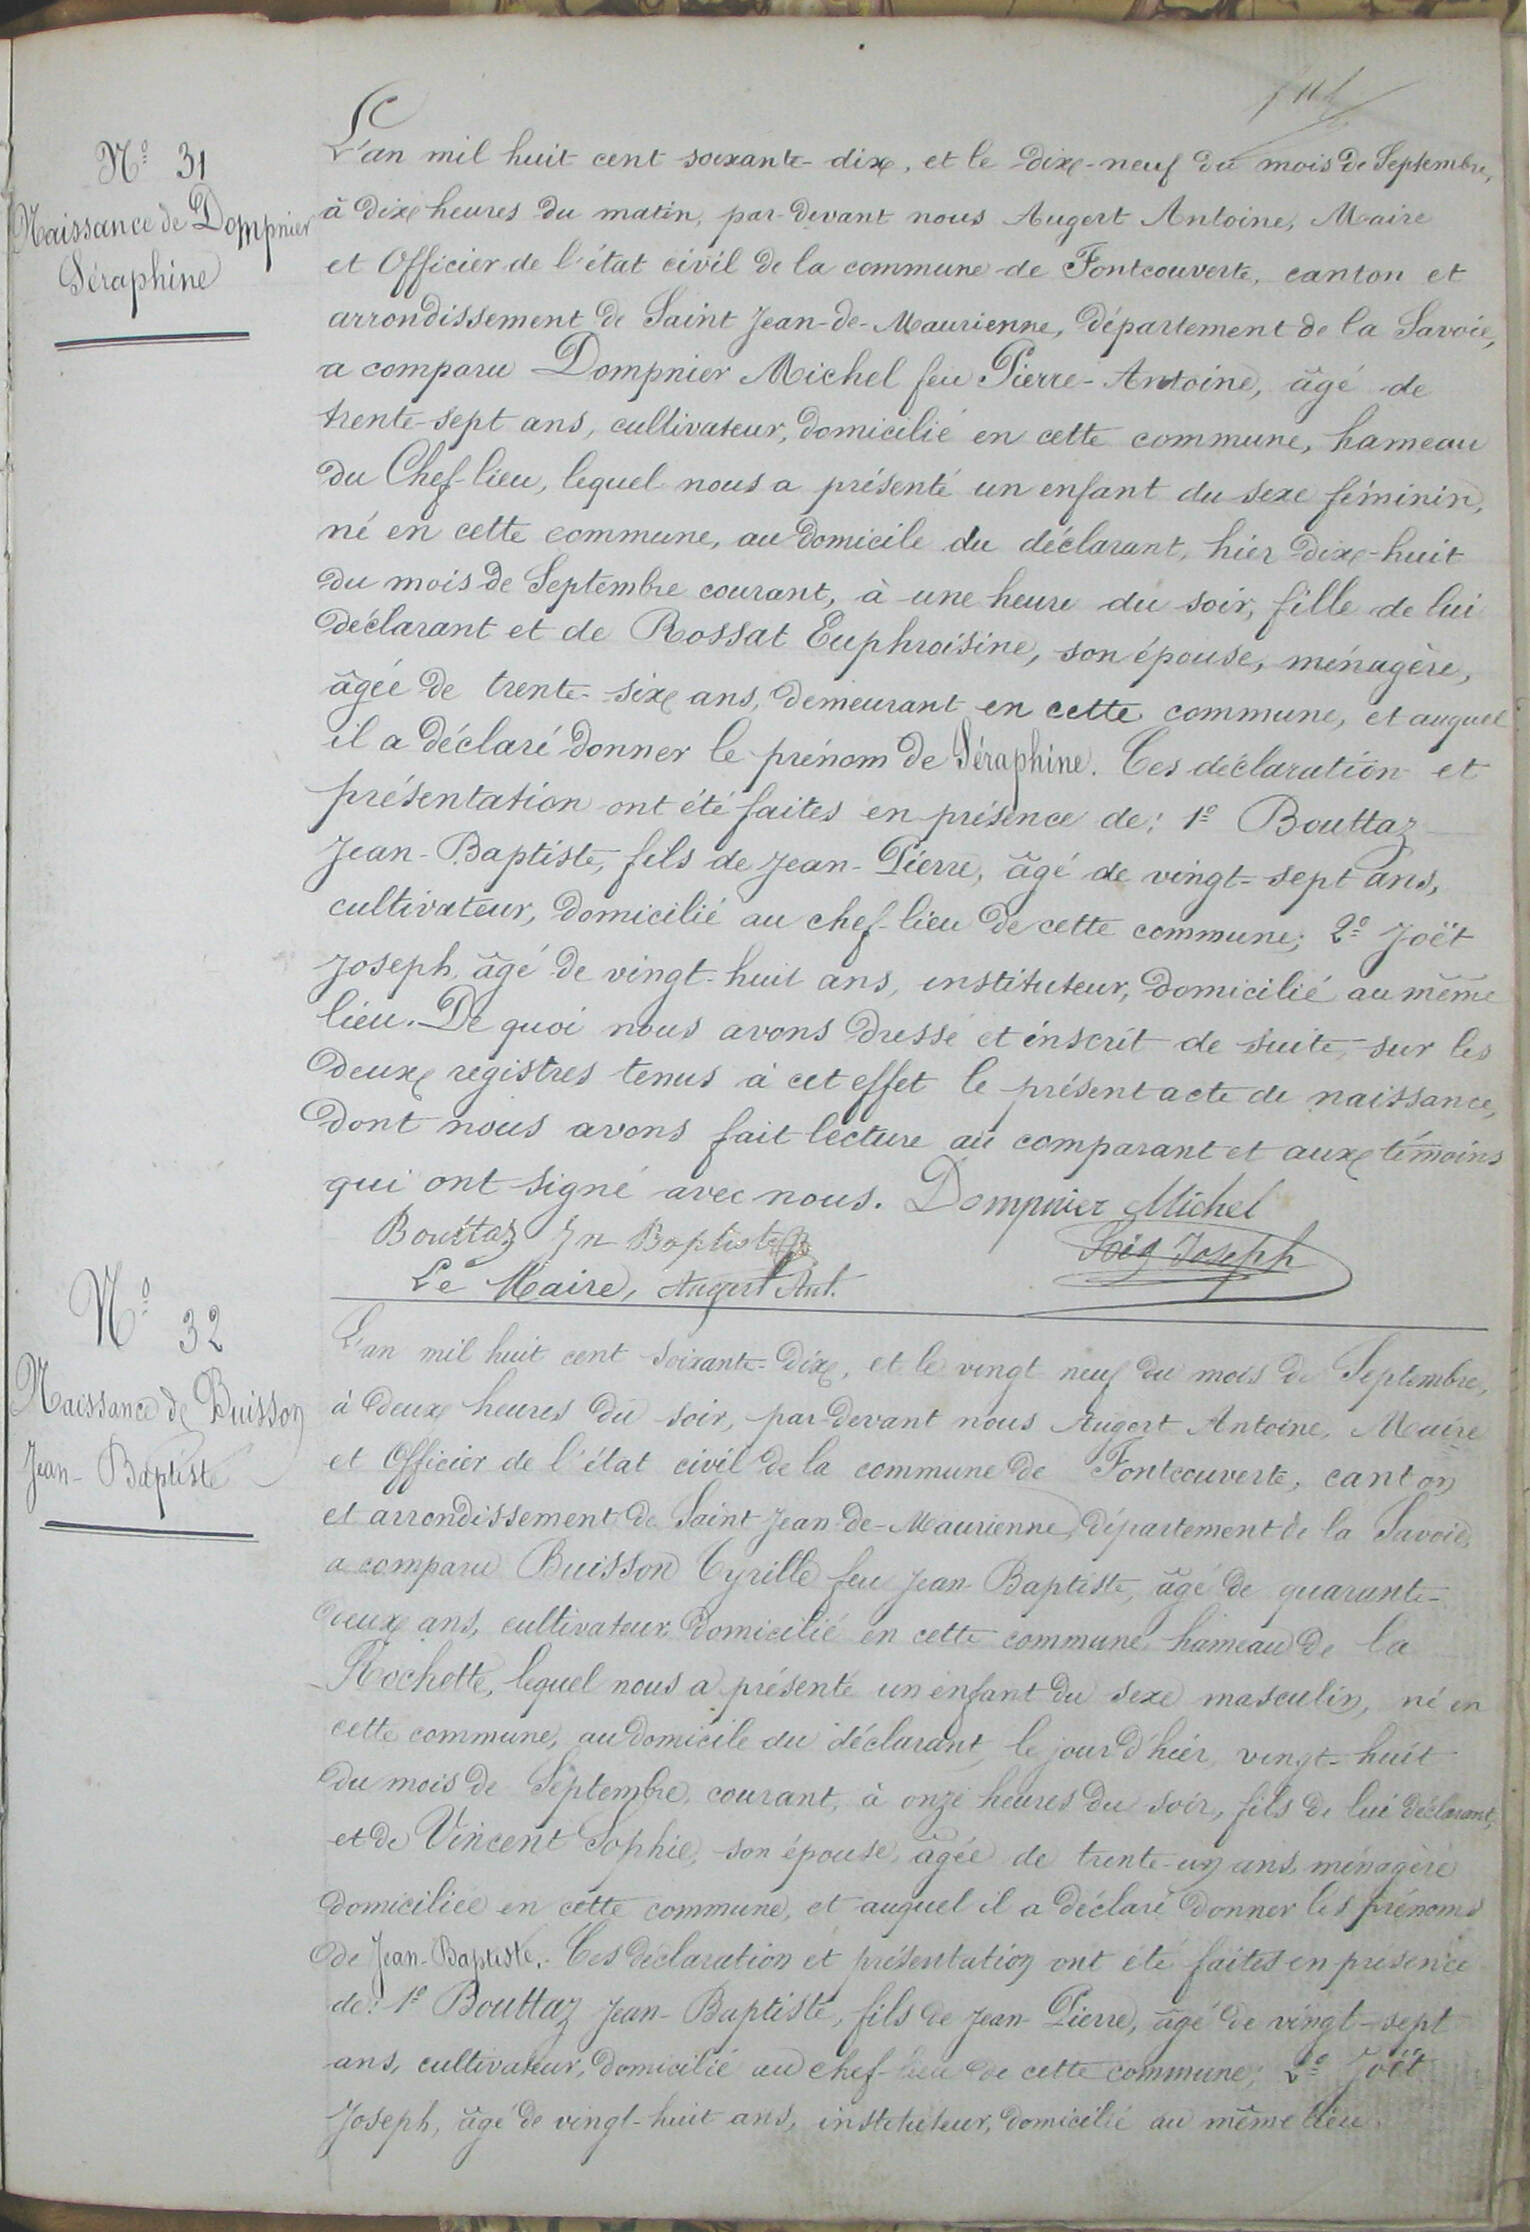 N° 31
Naissance de Dompnier
Séraphine
L'an mil huit cent soixante-dix, et le dix-neuf du mois de Septembre,
à dix heures du matin, par-devant nous Augert Antoine, Maire
et Officier de l'état civil de la commune de Fontcouverte, canton et
arrondissement de Saint Jean-de-Maurienne, département de la Savoie,
a comparu Dompnier Michel feu Pierre-Antoine, âgé de
trente-sept ans, cultivateur, domicilié en cette commune, hameau
du Chef-lieu, lequel nous a présenté un enfant du sexe féminin,
né en cette commune, au domicile du déclarant, hier dix-huit
du mois de Septembre courant, à une heure du soir, fille de lui
déclarant et de Rossat Euphroisine, son épouse, ménagère,
âgée de trente-six ans, demeurant en cette commune, et auquel
il a déclaré donner le prénom de Séraphine. Ces déclaration et
présentation ont été faites en présence de: 1° Bouttaz
Jean-Baptiste, fils de Jean-Pierre, âgé de vingt-sept ans,
cultivateur, domicilié au chef-lieu de cette commune; 2° Joët
Joseph, âgé de vingt-huit ans, instituteur, domicilié au même
lieu. De quoi nous avons dressé et inscrit de suite, sur les
deux registres tenus à cet effet le présent acte de naissance,
dont nous avons fait lecture au comparant et aux témoins
qui ont signé avec nous. Dompnier Michel
Bouttaz Jn Baptiste Joseph
Le Maire, Augert Ant.
N° 32
Naissance de Buisson
Jean-Baptiste
L'an mil huit cent soixante-dix, et le vingt neuf du mois de Septembre,
à deux heures du soir, par-devant nous Augert Antoine, Maire
et Officier de l'état civil de la commune de Fontcouverte, canton
et arrondissement de Saint Jean-de-Maurienne, département de la Savoie,
a comparu Buisson Cyrille feu Jean-Baptiste, âgé de quarante-
deux ans, cultivateur, domicilié en cette commune, hameau de la
Rochette, lequel nous a présenté un enfant du sexe masculin, né en
cette commune, au domicile du déclarant, le jour d'hier, vingt-huit
du mois de Septembre, courant, à onze heures du soir, fils de lui déclarant,
et de Vincent Sophie, son épouse, âgée de trente-un ans, ménagère
domiciliée en cette commune, et auquel il a déclaré donner les prénoms
de Jean-Baptiste. Ces déclaration et présentation ont été faites en présence
de: 1° Bouttaz Jean-Baptiste, fils de Jean-Pierre, âgé de vingt-sept
ans, cultivateur, domicilié au chef-lieu de cette commune; 2° Joët
Joseph, âgé de vingt-huit ans, instituteur, domicilié au même lieu.